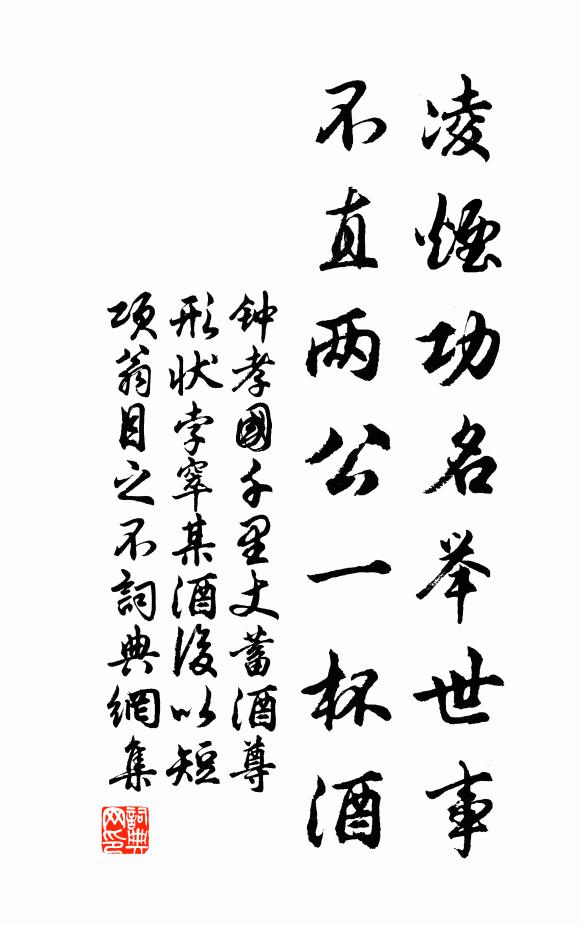 凌煙功名举世事
不直两公一杯酒
钟孝國千里丈蓄酒尊
形状孛窣某酒後以短
项翁目之不詞典網集
詞典网印